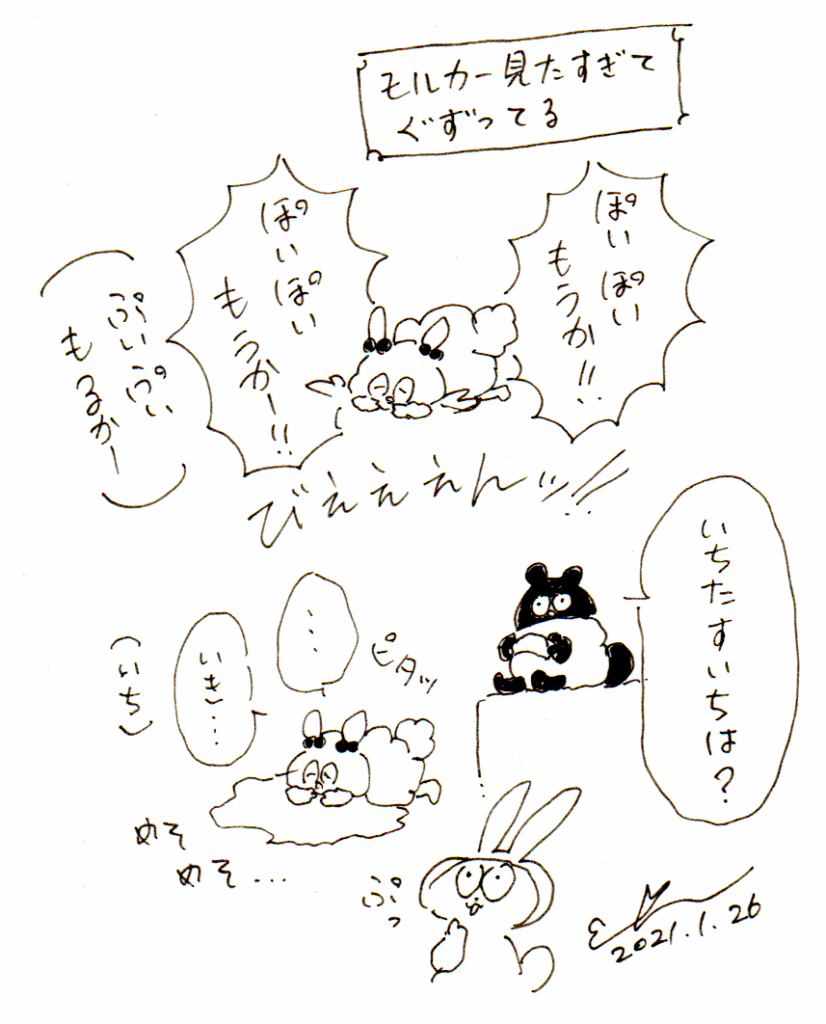 モルカー見たすぎて
ぐずってる
ぽいぽい
もうか!!
ぽいぽい
もうかー!!
(ぷいぷい
もるかー)
びえぇぇんッ!!
いちたすいちは?
ピタッ
…
いき…
(いち)
めそ
めそ…
ぷっ
2021.1.26